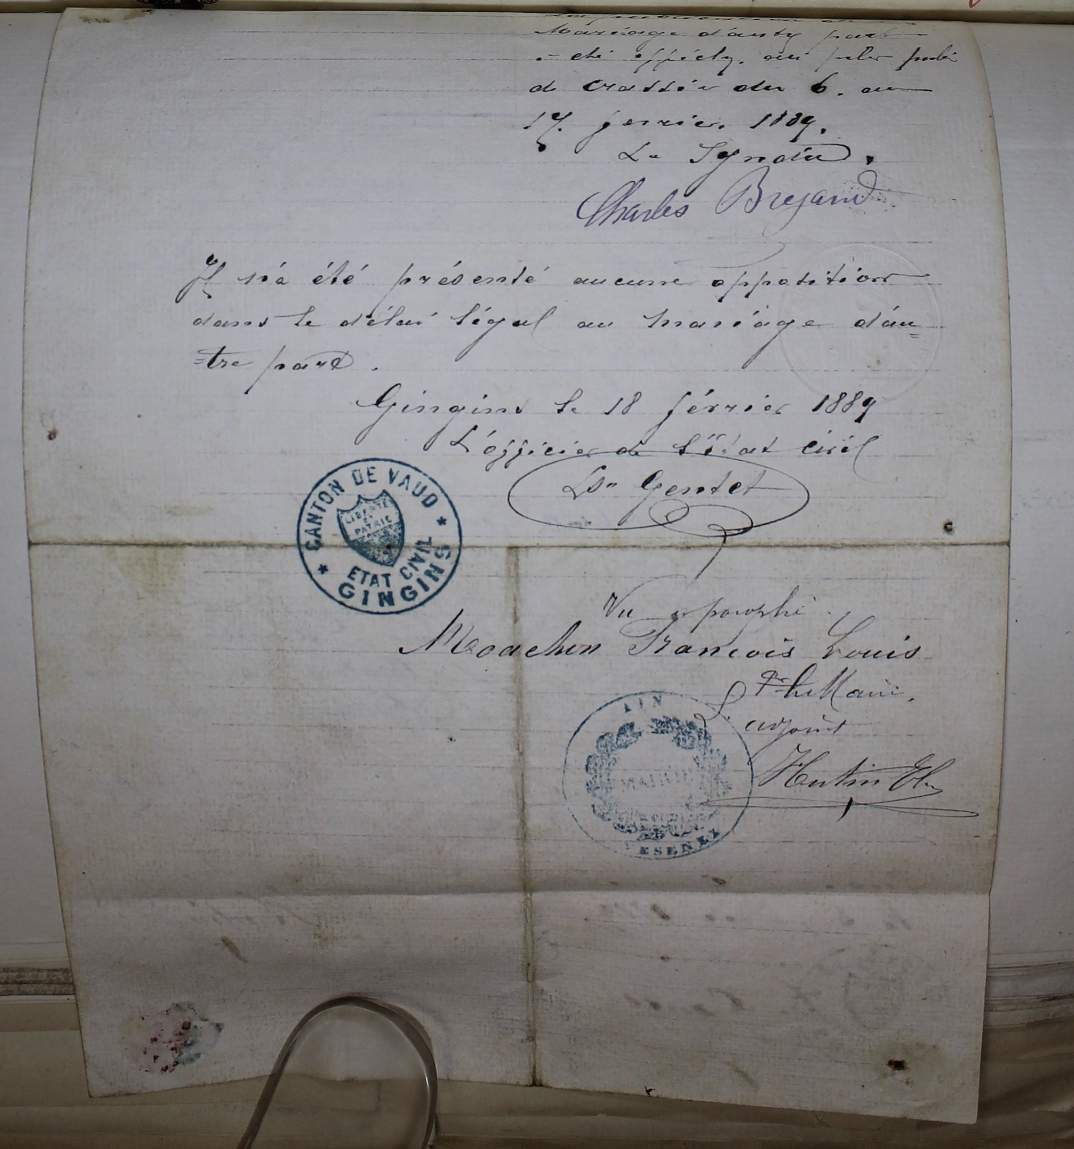 mariage d'autre part
a été affiché au pilier public
de Crassier du 6. au
17. fevrier. 1889.
Le Syndic.
Charles Bregand
Il n'a été présenté aucune opposition
dans le délai légal au mariage d'au=
=tre part.
Gingins le 18 février 1889
L'officier de l'état civil
Ls Gentet
CANTON DE VAUD
LIBERTÉ
ET
PATRIE
ETAT CIVIL
GINGINS
Vu & paraphé
Moachon François Louis
Pr le Maire,
adjoint
Hutin
AIN
MAIRIE